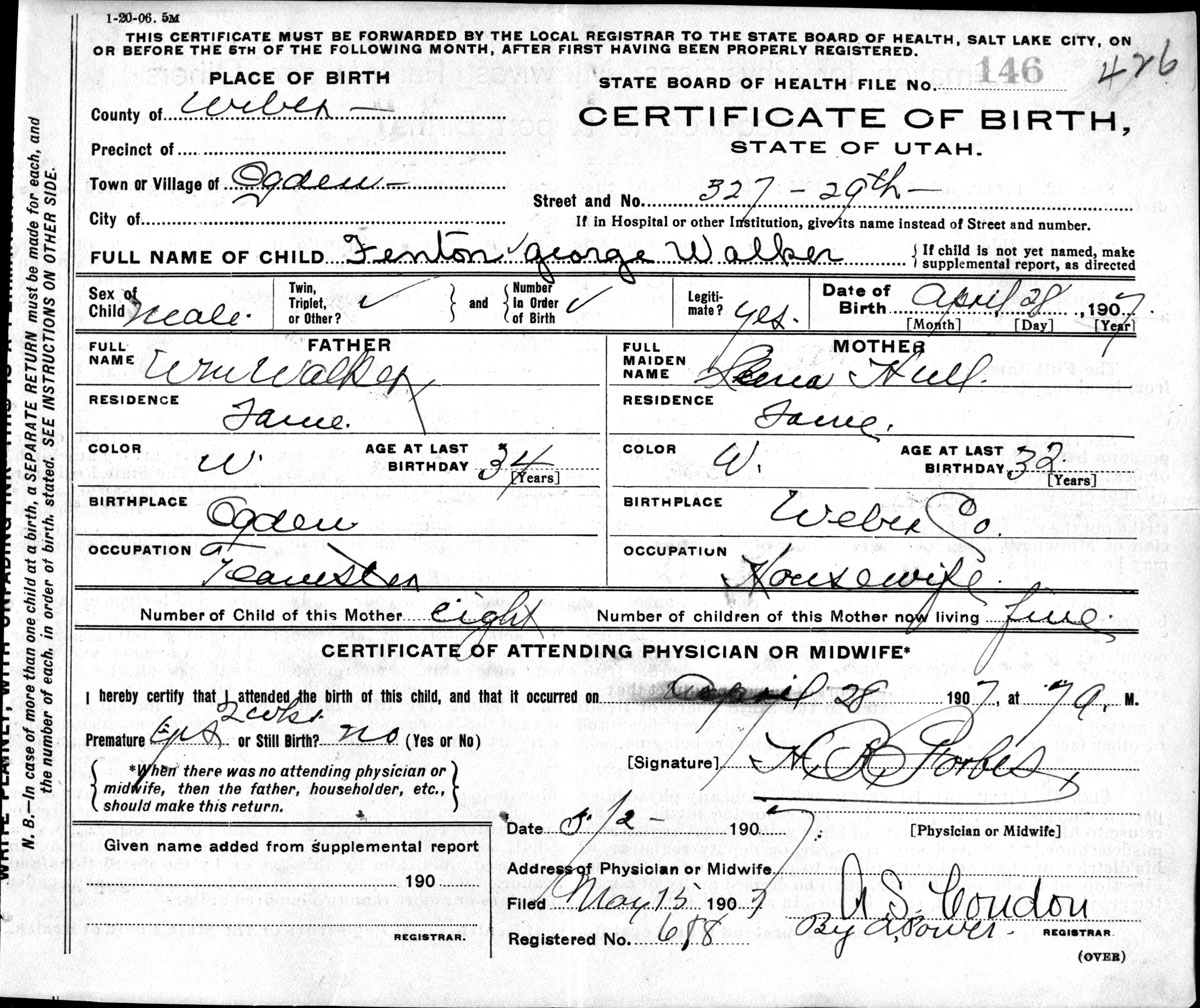 1-20-06. 5M
THIS CERTIFICATE MUST BE FORWARDED BY THE LOCAL REGISTRAR TO THE STATE BOARD OF HEALTH, SALT LAKE CITY, ON
OR BEFORE THE 5TH OF THE FOLLOWING MONTH, AFTER FIRST HAVING BEEN PROPERLY REGISTERED.
PLACE OF BIRTH
STATE BOARD OF HEALTH FILE No. 146 426
County of Weber
CERTIFICATE OF BIRTH,
Precinct of
STATE OF UTAH.
Town or Village of Ogden
Street and No. 327 - 29th -
City of
If in Hospital or other Institution, give its name instead of Street and number.
FULL NAME OF CHILD Fenton George Walker { If child is not yet named, make
supplemental report, as directed
Sex of Child Male. Twin, Triplet, or Other? ✓ } and { Number in Order of Birth ✓ Legiti-mate? yes. Date of Birth April 28, 1907.
[Month] [Day] [Year]
FATHER
FULL NAME Wm Walker
MOTHER
FULL MAIDEN NAME Hull.
RESIDENCE Same.
RESIDENCE Same.
COLOR W. AGE AT LAST BIRTHDAY 34 [Years]
COLOR W. AGE AT LAST BIRTHDAY 32 [Years]
BIRTHPLACE Ogden
BIRTHPLACE Weber Co.
OCCUPATION Teamster
OCCUPATION Housewife.
Number of Child of this Mother eight
Number of children of this Mother now living five
CERTIFICATE OF ATTENDING PHYSICIAN OR MIDWIFE*
I hereby certify that I attended the birth of this child, and that it occurred on April 28 1907, at 7 a. M.
Premature or Still Birth? no (Yes or No)
[Signature] H. R. Forbes
{ *When there was no attending physician or
midwife, then the father, householder, etc.,
should make this return. }
Date 5/2 - 1907.
[Physician or Midwife]
Given name added from supplemental report
190
REGISTRAR.
Address of Physician or Midwife
Filed May 15 1907
A. S. Condon
By A. Power.
REGISTRAR.
Registered No. 618
(OVER)
N. B.—In case of more than one child at a birth, a SEPARATE RETURN must be made for each, and
the number of each. in order of birth. stated. SEE INSTRUCTIONS ON OTHER SIDE.
WRITE PLAINLY, WITH UNFADING INK THIS IS A PERMANENT